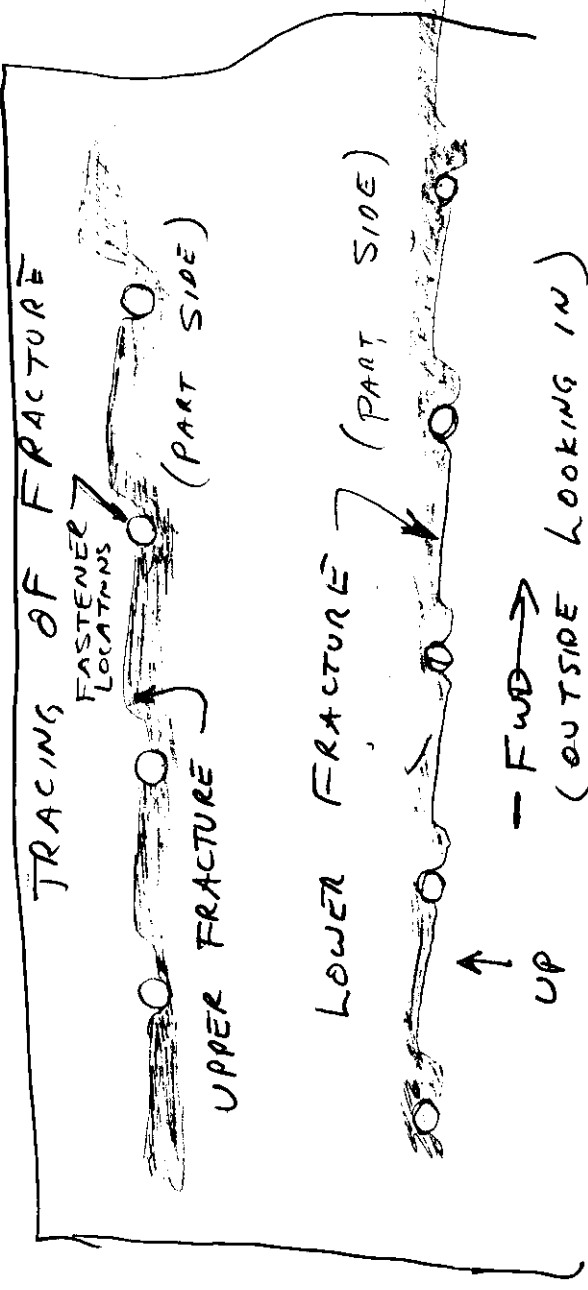 TRACING OF FRACTURE
FASTENER
LOCATNNS
(PART SIDE)
UPPER FRACTURE
LOWER FRACTURE
(PART SIDE)
UP
- FWD
(OUTSIDE LOOKING IN)